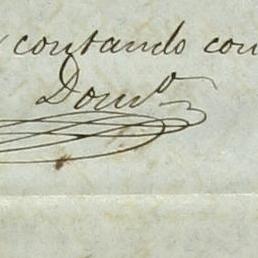 contando con
Domº